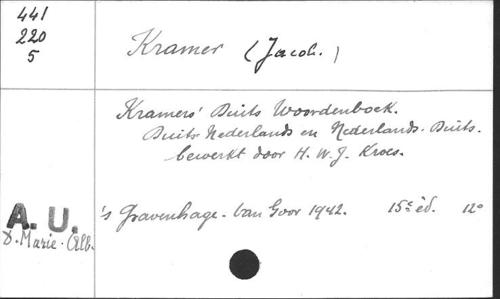 441
220
5
Kramer (Jacob.)
Kramers' Duits Woordenboek.
Duits-Nederlands en Nederlands-Duits.
bewerkt door H. W. J. Kroes.
A. U.
's Gravenhage. Van Goor 1942. 15e éd. 12°
d. Marie. Alb.